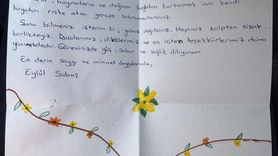 , hayvanların ve doğanın hayatını kurtarmak için kendi
hayatını riske atan gerçek kahramanlarsınız.
Şunu bilmenizi isterim ki, yalnız değilsiniz. Hepimiz kalpten sizinle
birlikteyiz. Dualarımız, dileklerimiz ve en içten teşekkürlerimiz daima
yanınızdadır. Görevinizde güç, sabır ve sağlık diliyorum.
En derin saygı ve minnet duygularımla,
Eylül